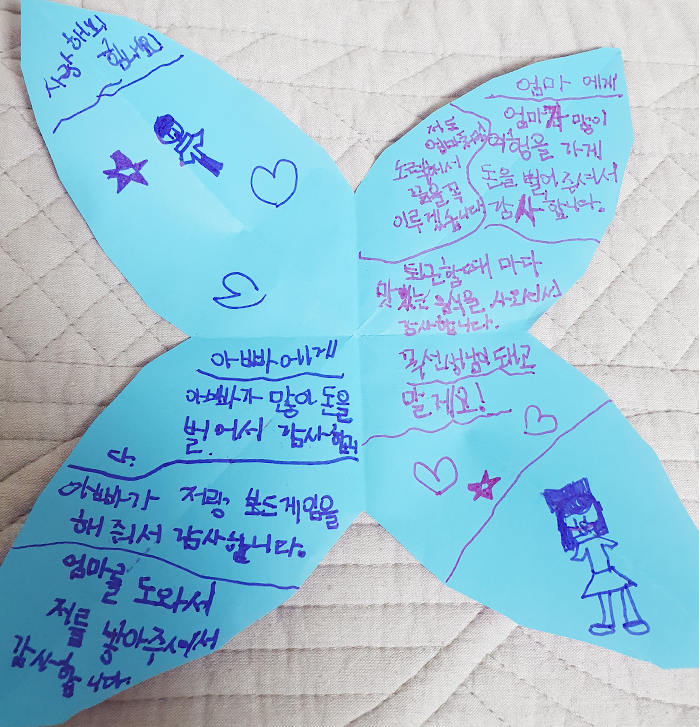 사랑해요
힘내요
아빠에게
아빠가 많이 돈을
벌어서 감사합니
다.
아빠가 저랑 보드게임을
해 줘서 감사합니다.
엄마를 도와서
저를 낳아주셔서
감사합니다.
엄마 에게
엄마가 많이
여행을 가게
돈을 벌어 주셔서
감사합니다.
퇴근할때 마다
맛있는 음식을 사와셔서
감사합니다.
저도
노력해서
꿈을 꼭
이루게습니다
꼭 선생님이 돼고
말게요!